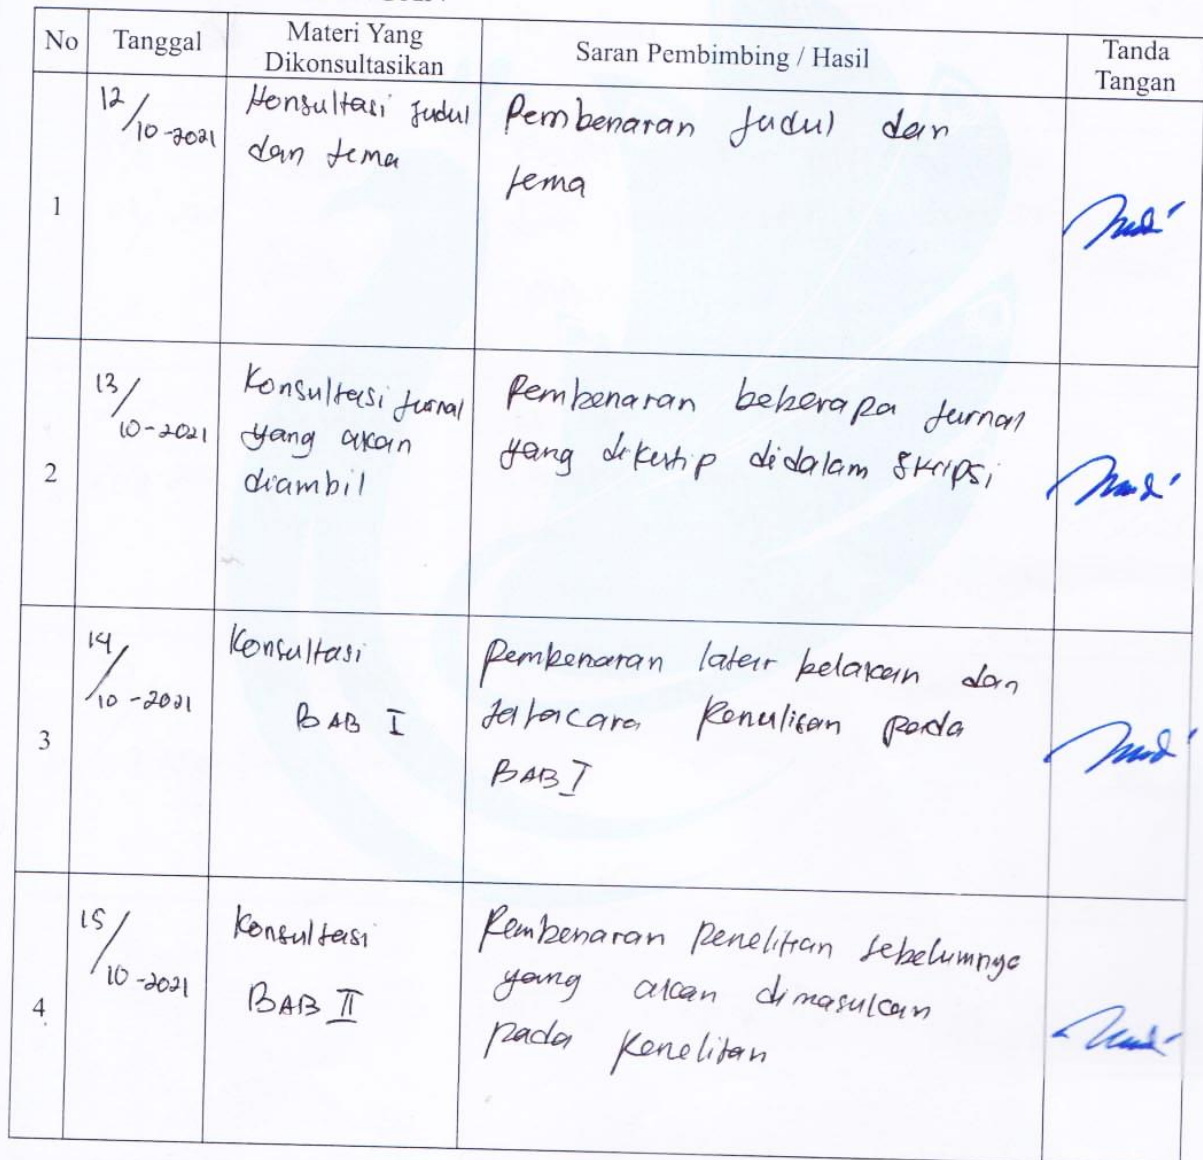 No Tanggal Materi Yang Dikonsultasikan Saran Pembimbing / Hasil Tanda Tangan
1
12/10-2021
Konsultasi judul
dan tema
Pembenaran judul dan
tema
2
13/10-2021
Konsultasi jurnal
yang akan
diambil
Pembenaran beberapa jurnal
yang dikutip didalam skripsi
3
14/10-2021
Konsultasi
BAB I
Pembenaran latar belakan dan
tatacara Penulisan pada
BAB I
4
15/10-2021
Konsultasi
BAB II
Pembenaran Penelitian sebelumnya
yang akan dimasukan
pada Penelitan